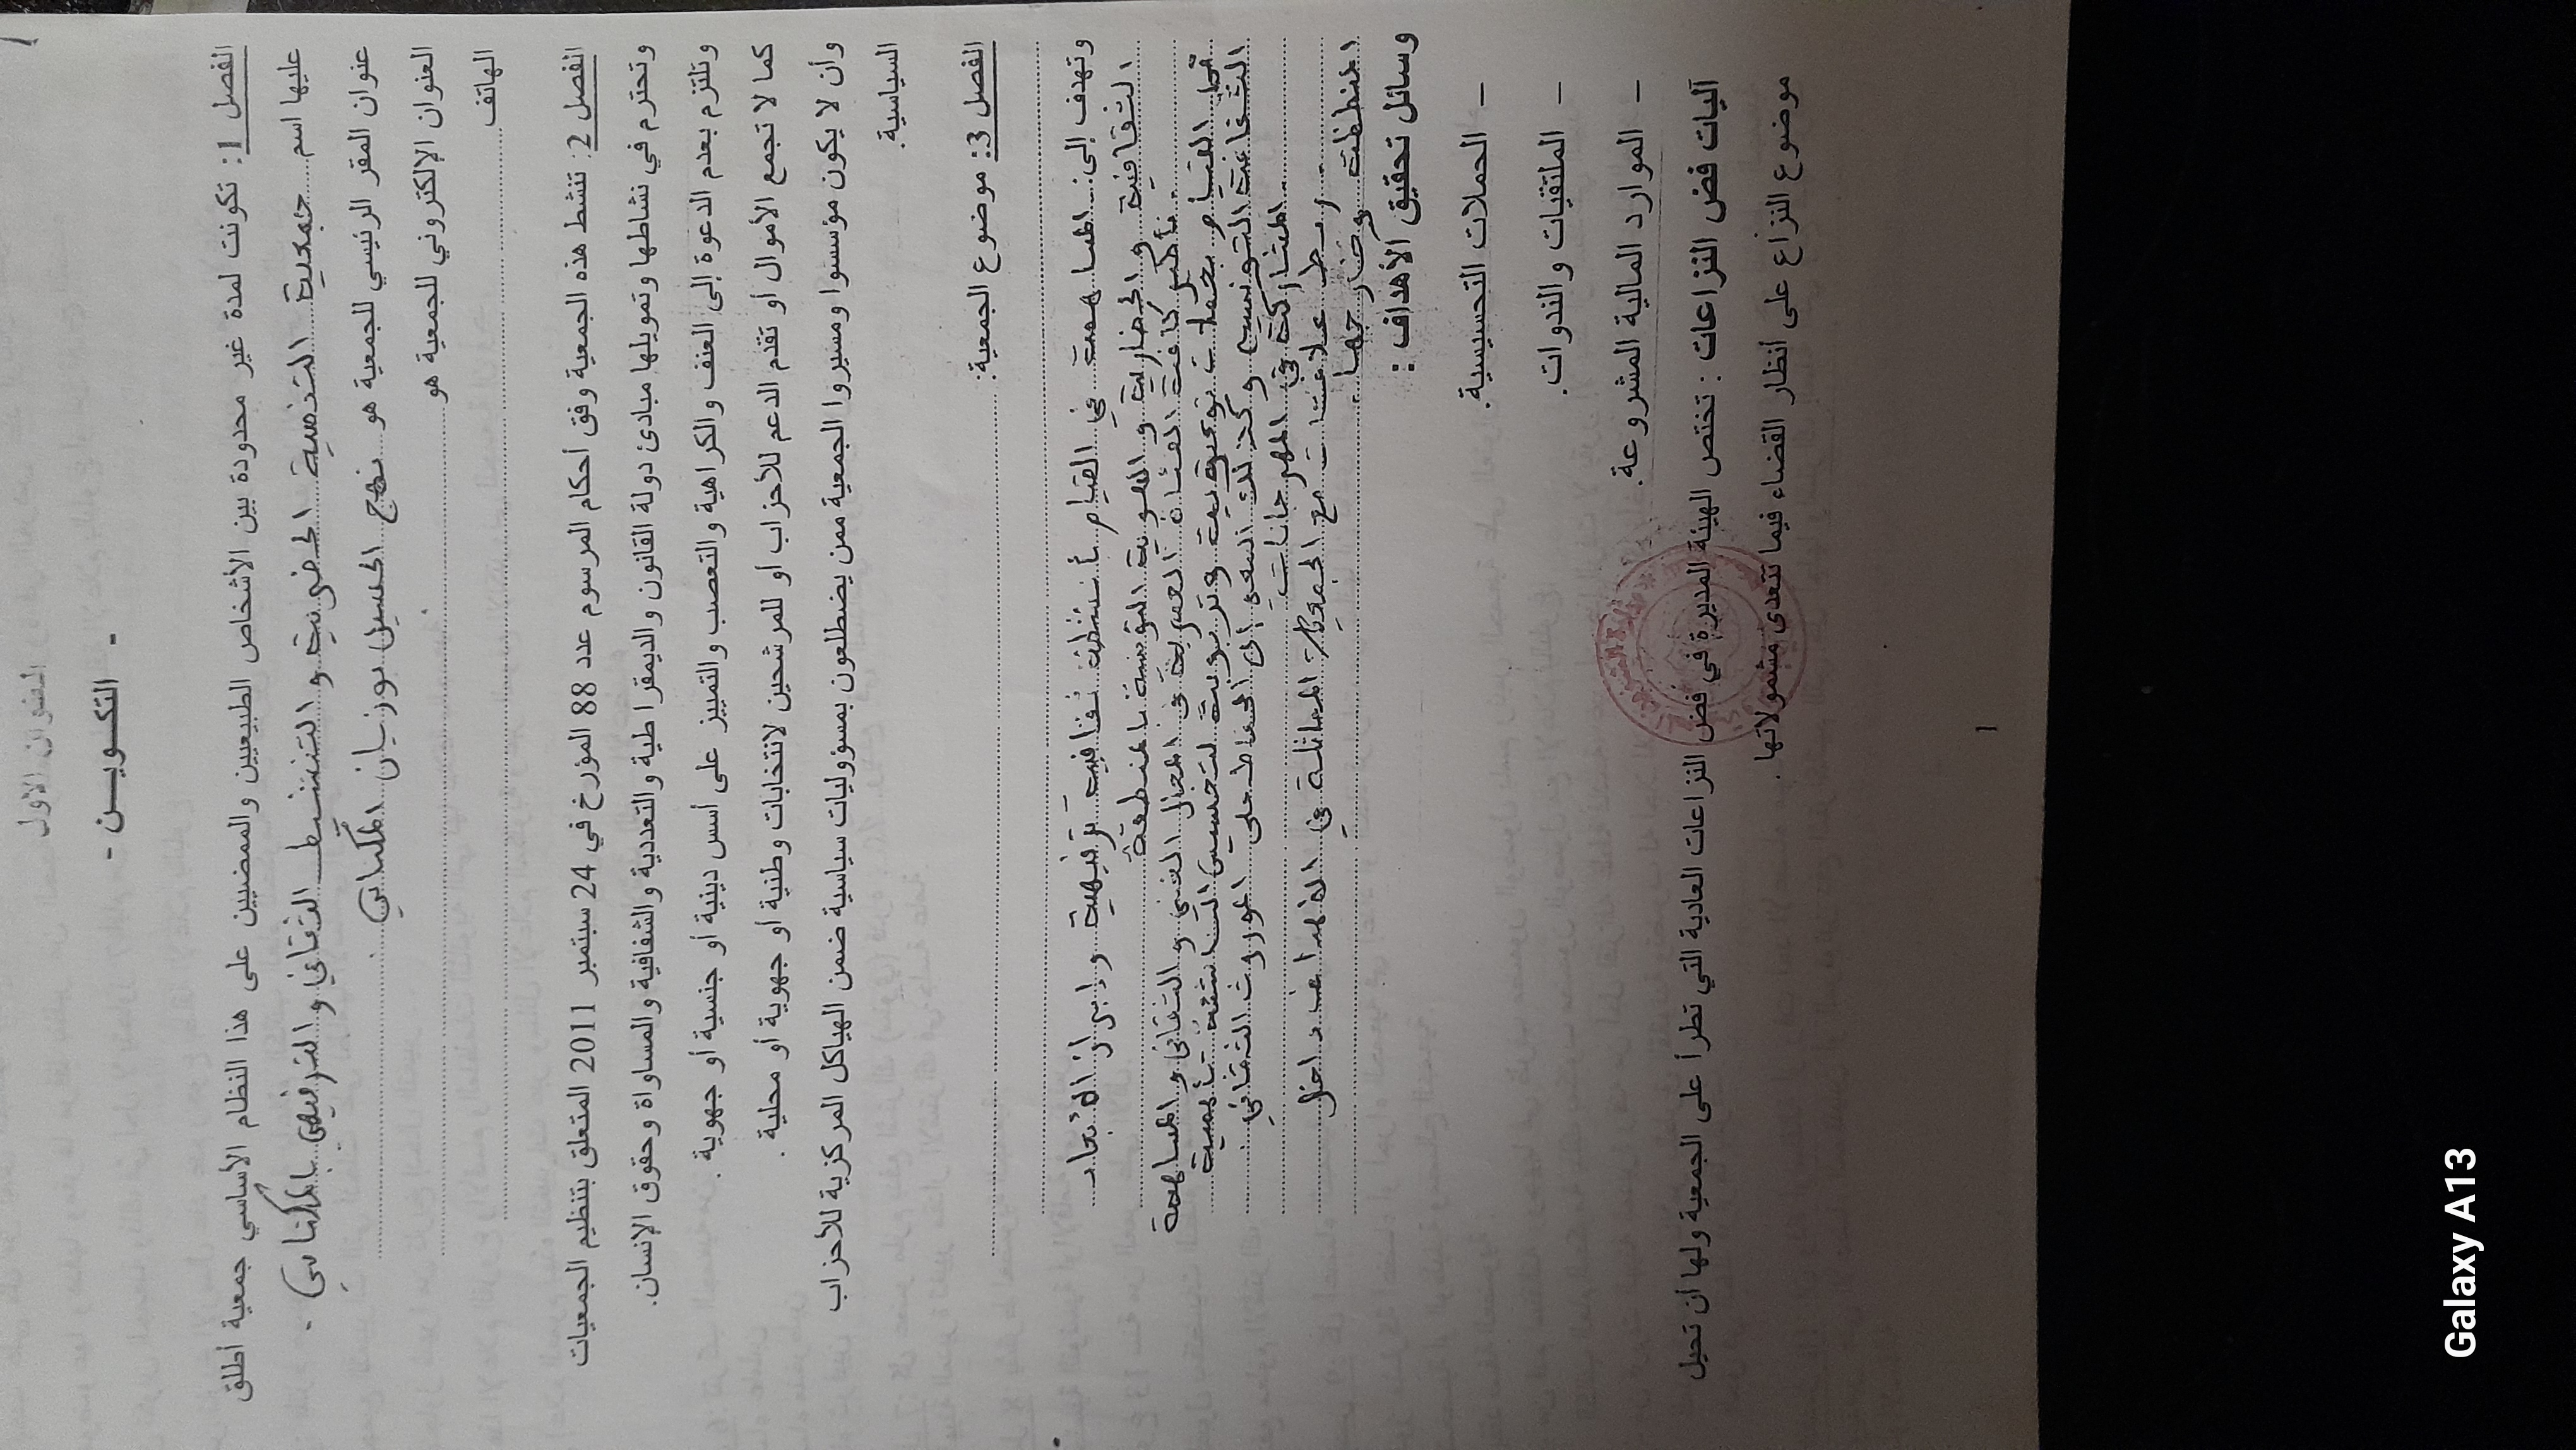 العنوان الأول
- التكـويـن -
الفصل 1: تكونت لمدة غير محدودة بين الأشخاص الطبيعيين والممضيين على هذا النظام الأساسي جمعية أطلق
عليها اسم جمعية التنمية و التنشيط الثقافي و الترفيهي بالمكناسي
عنوان المقر الرئيسي للجمعية هو نهج الحسين بوزيان المكناسي
العنوان الإلكتروني للجمعية هو
الهاتف
الفصل 2: تنشط هذه الجمعية وفق أحكام المرسوم عدد 88 المؤرخ في 24 سبتمبر 2011 المتعلق بتنظيم الجمعيات
وتحترم في نشاطها وتمويلها مبادئ دولة القانون والديمقراطية والتعددية والشفافية والمساواة وحقوق الإنسان.
وتلتزم بعدم الدعوة إلى العنف والكراهية والتعصب والتمييز على أسس دينية أو جنسية أو جهوية.
كما لا تجمع الأموال أو تقدم الدعم للأحزاب أو للمرشحين لانتخابات وطنية أو جهوية أو محلية.
وأن لا يكون مؤسسوا ومسيروا الجمعية ممن يضطلعون بمسؤوليات سياسية ضمن الهياكل المركزية للأحزاب
السياسية.
الفصل 3: موضوع الجمعية:
وتهدف إلى: المساهمة في القيام بأنشطة ثقافية ترفيهية وابراز الأبعاد
الثقافية و الحضارية و اللغوية التونسية بالمنطقة
العمرية في المجال الفني و الثقافي و المساهمة
القيام بحملات توعوية و تربوية لتحسيس الناشئة بأهمية
الثقافة التونسية و كذلك السعي الى الحفاظ على الموروث الثقافي
المشاركة في المهرجانات
ربط علاقات مع الجمعيات المماثلة في الأهداف داخل
المنطقة وخارجها
وسائل تحقيق الأهداف :
– الحملات التحسيسية.
– الملتقيات والندوات.
– الموارد المالية المشروعة.
آليات فض النزاعات : تختص الهيئة المديرة في فض النزاعات العادية التي تطرأ على الجمعية ولها ان تحيل
موضوع النزاع على أنظار القضاء فيما تتعدى مشمولاتها.
1
Galaxy A13